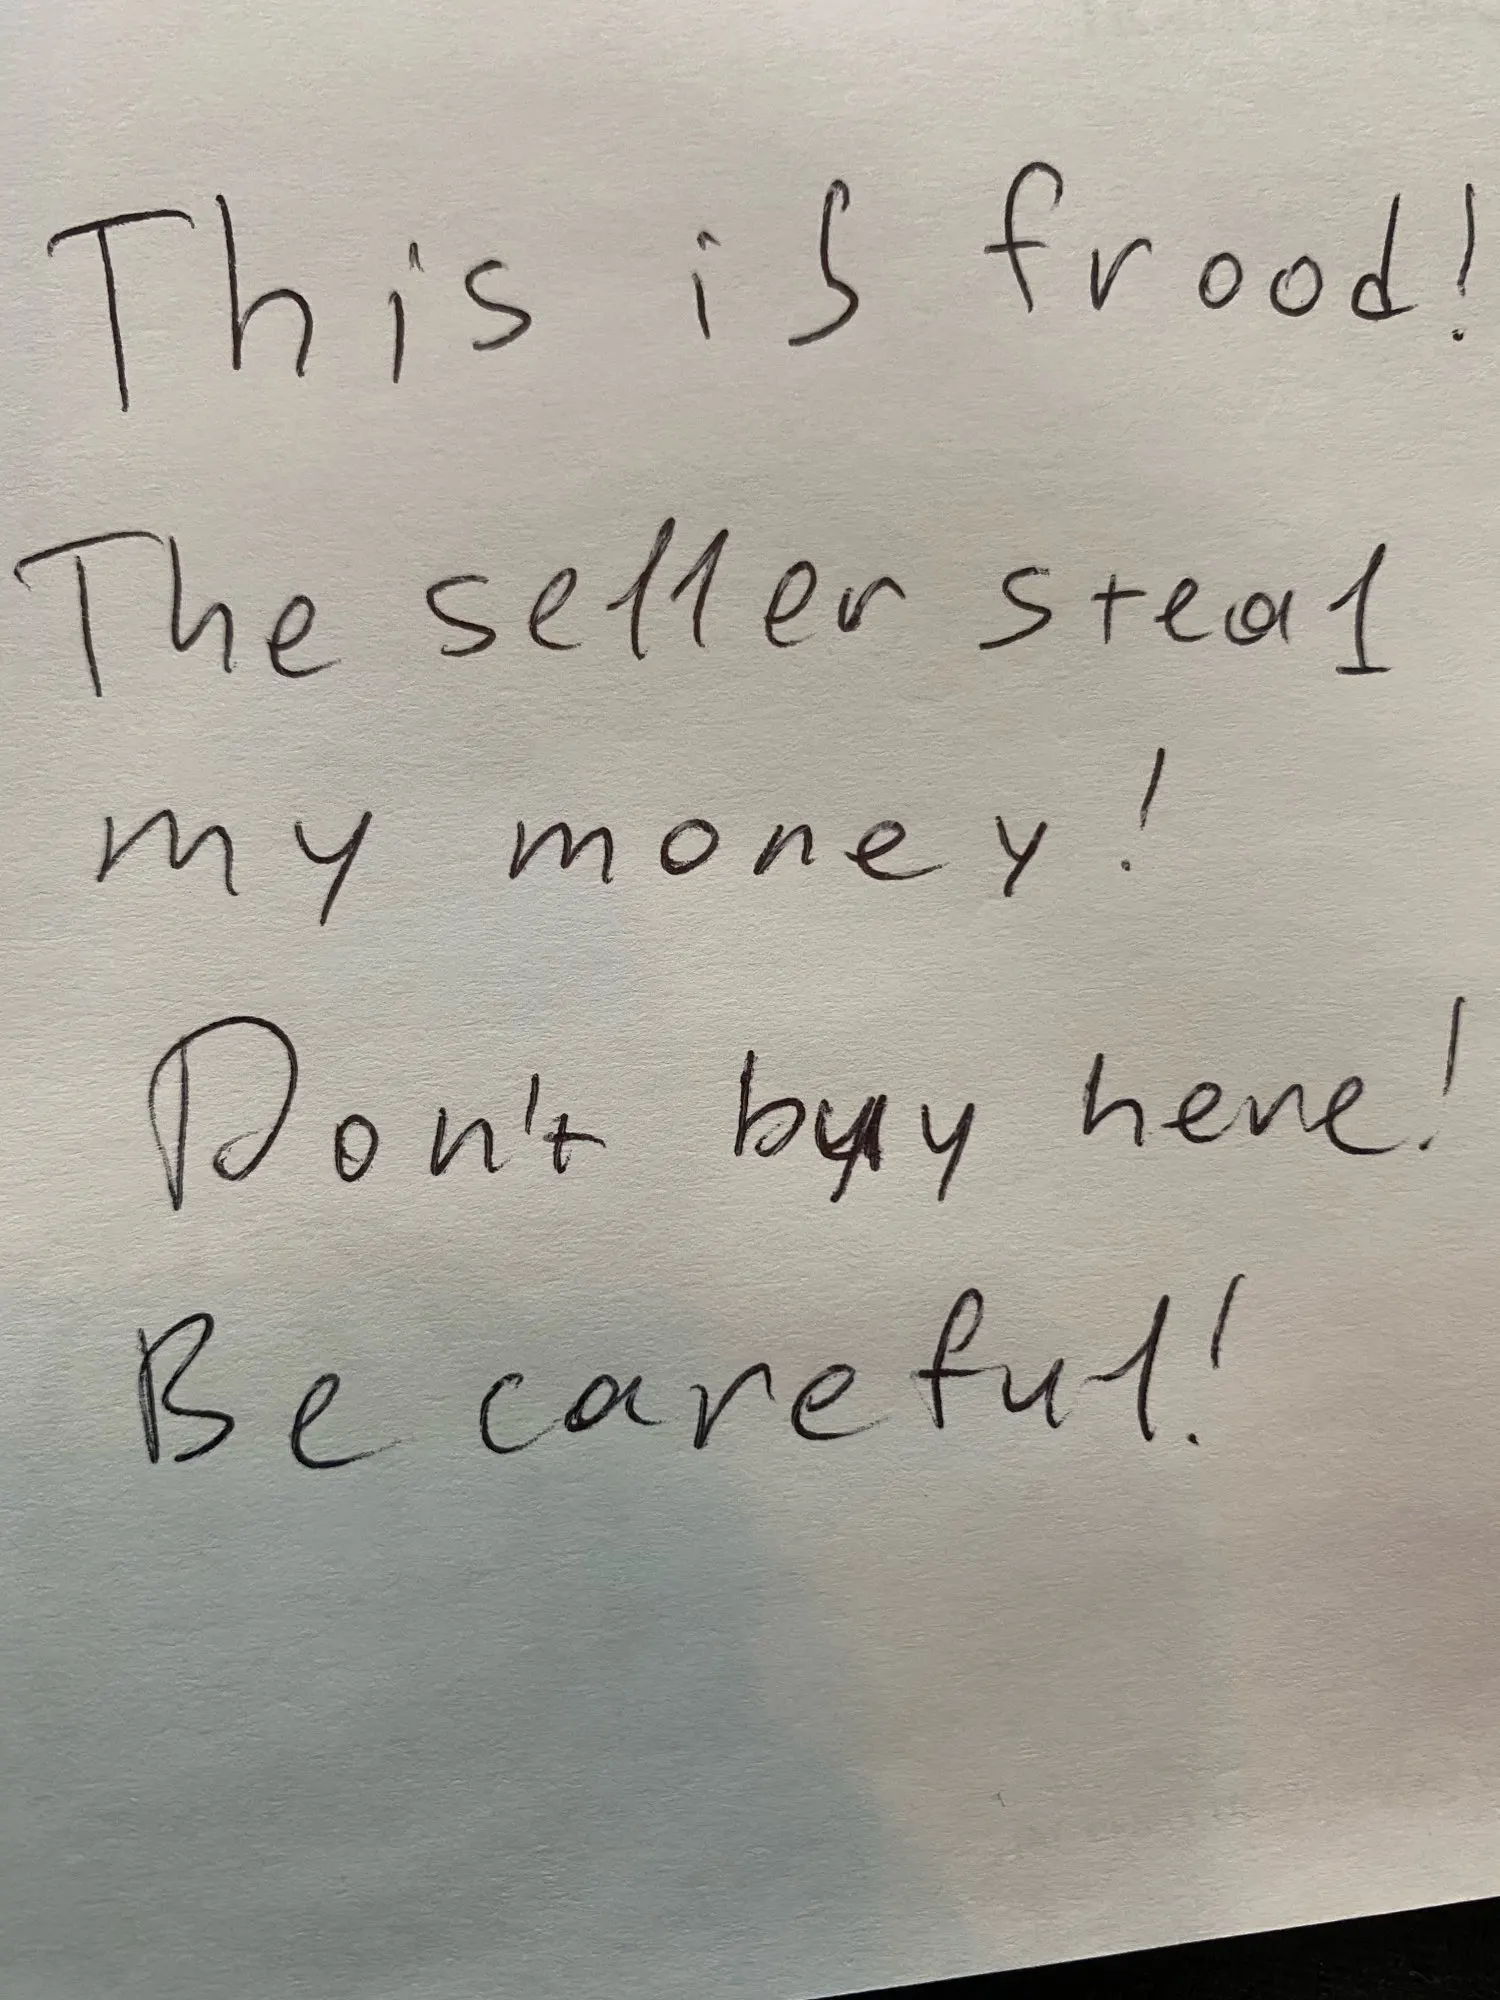 This is frood!
The seller steal
my money!
Don't buy here!
Be careful!